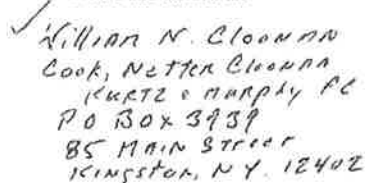 William N. Cloonan
Cook, Netter Cloonan
Kurtz & Murphy PC
PO Box 3939
85 Main Street
Kingston, NY. 12402